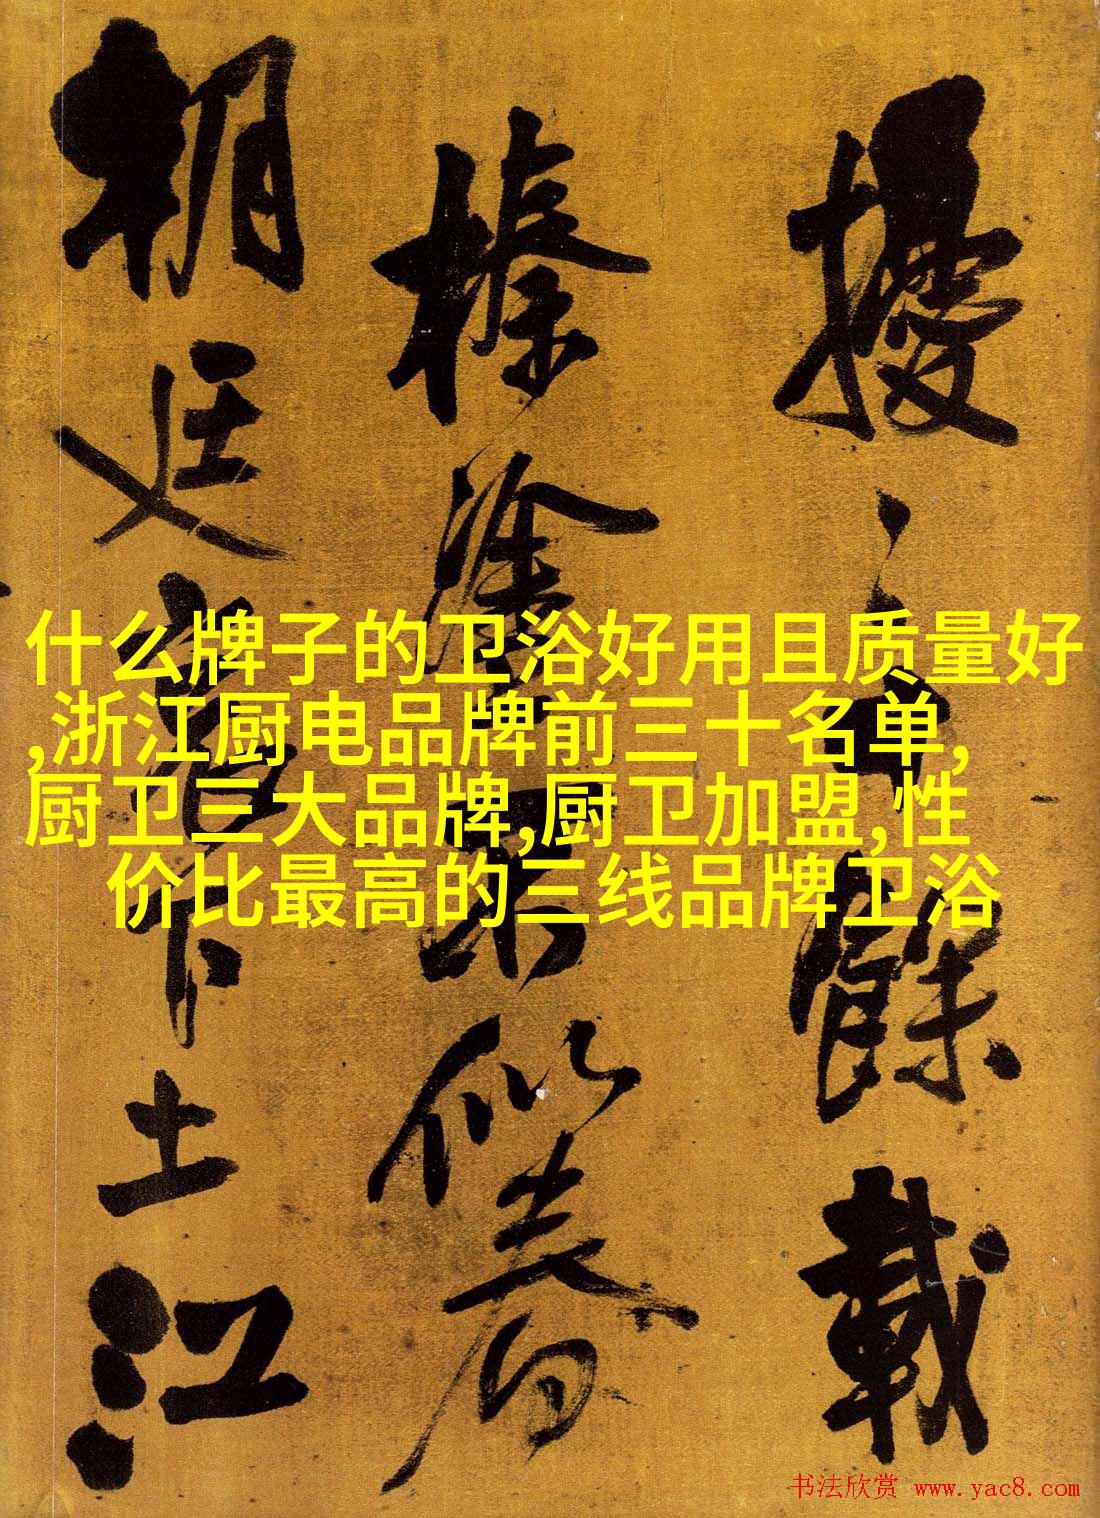 什么牌子的卫浴好用且质量好
,浙江厨电品牌前三十名单,
厨卫三大品牌,厨卫加盟,性
价比最高的三线品牌卫浴
擾餘載
榛塗不似
廷下土江
书法欣赏 www.yac8.com